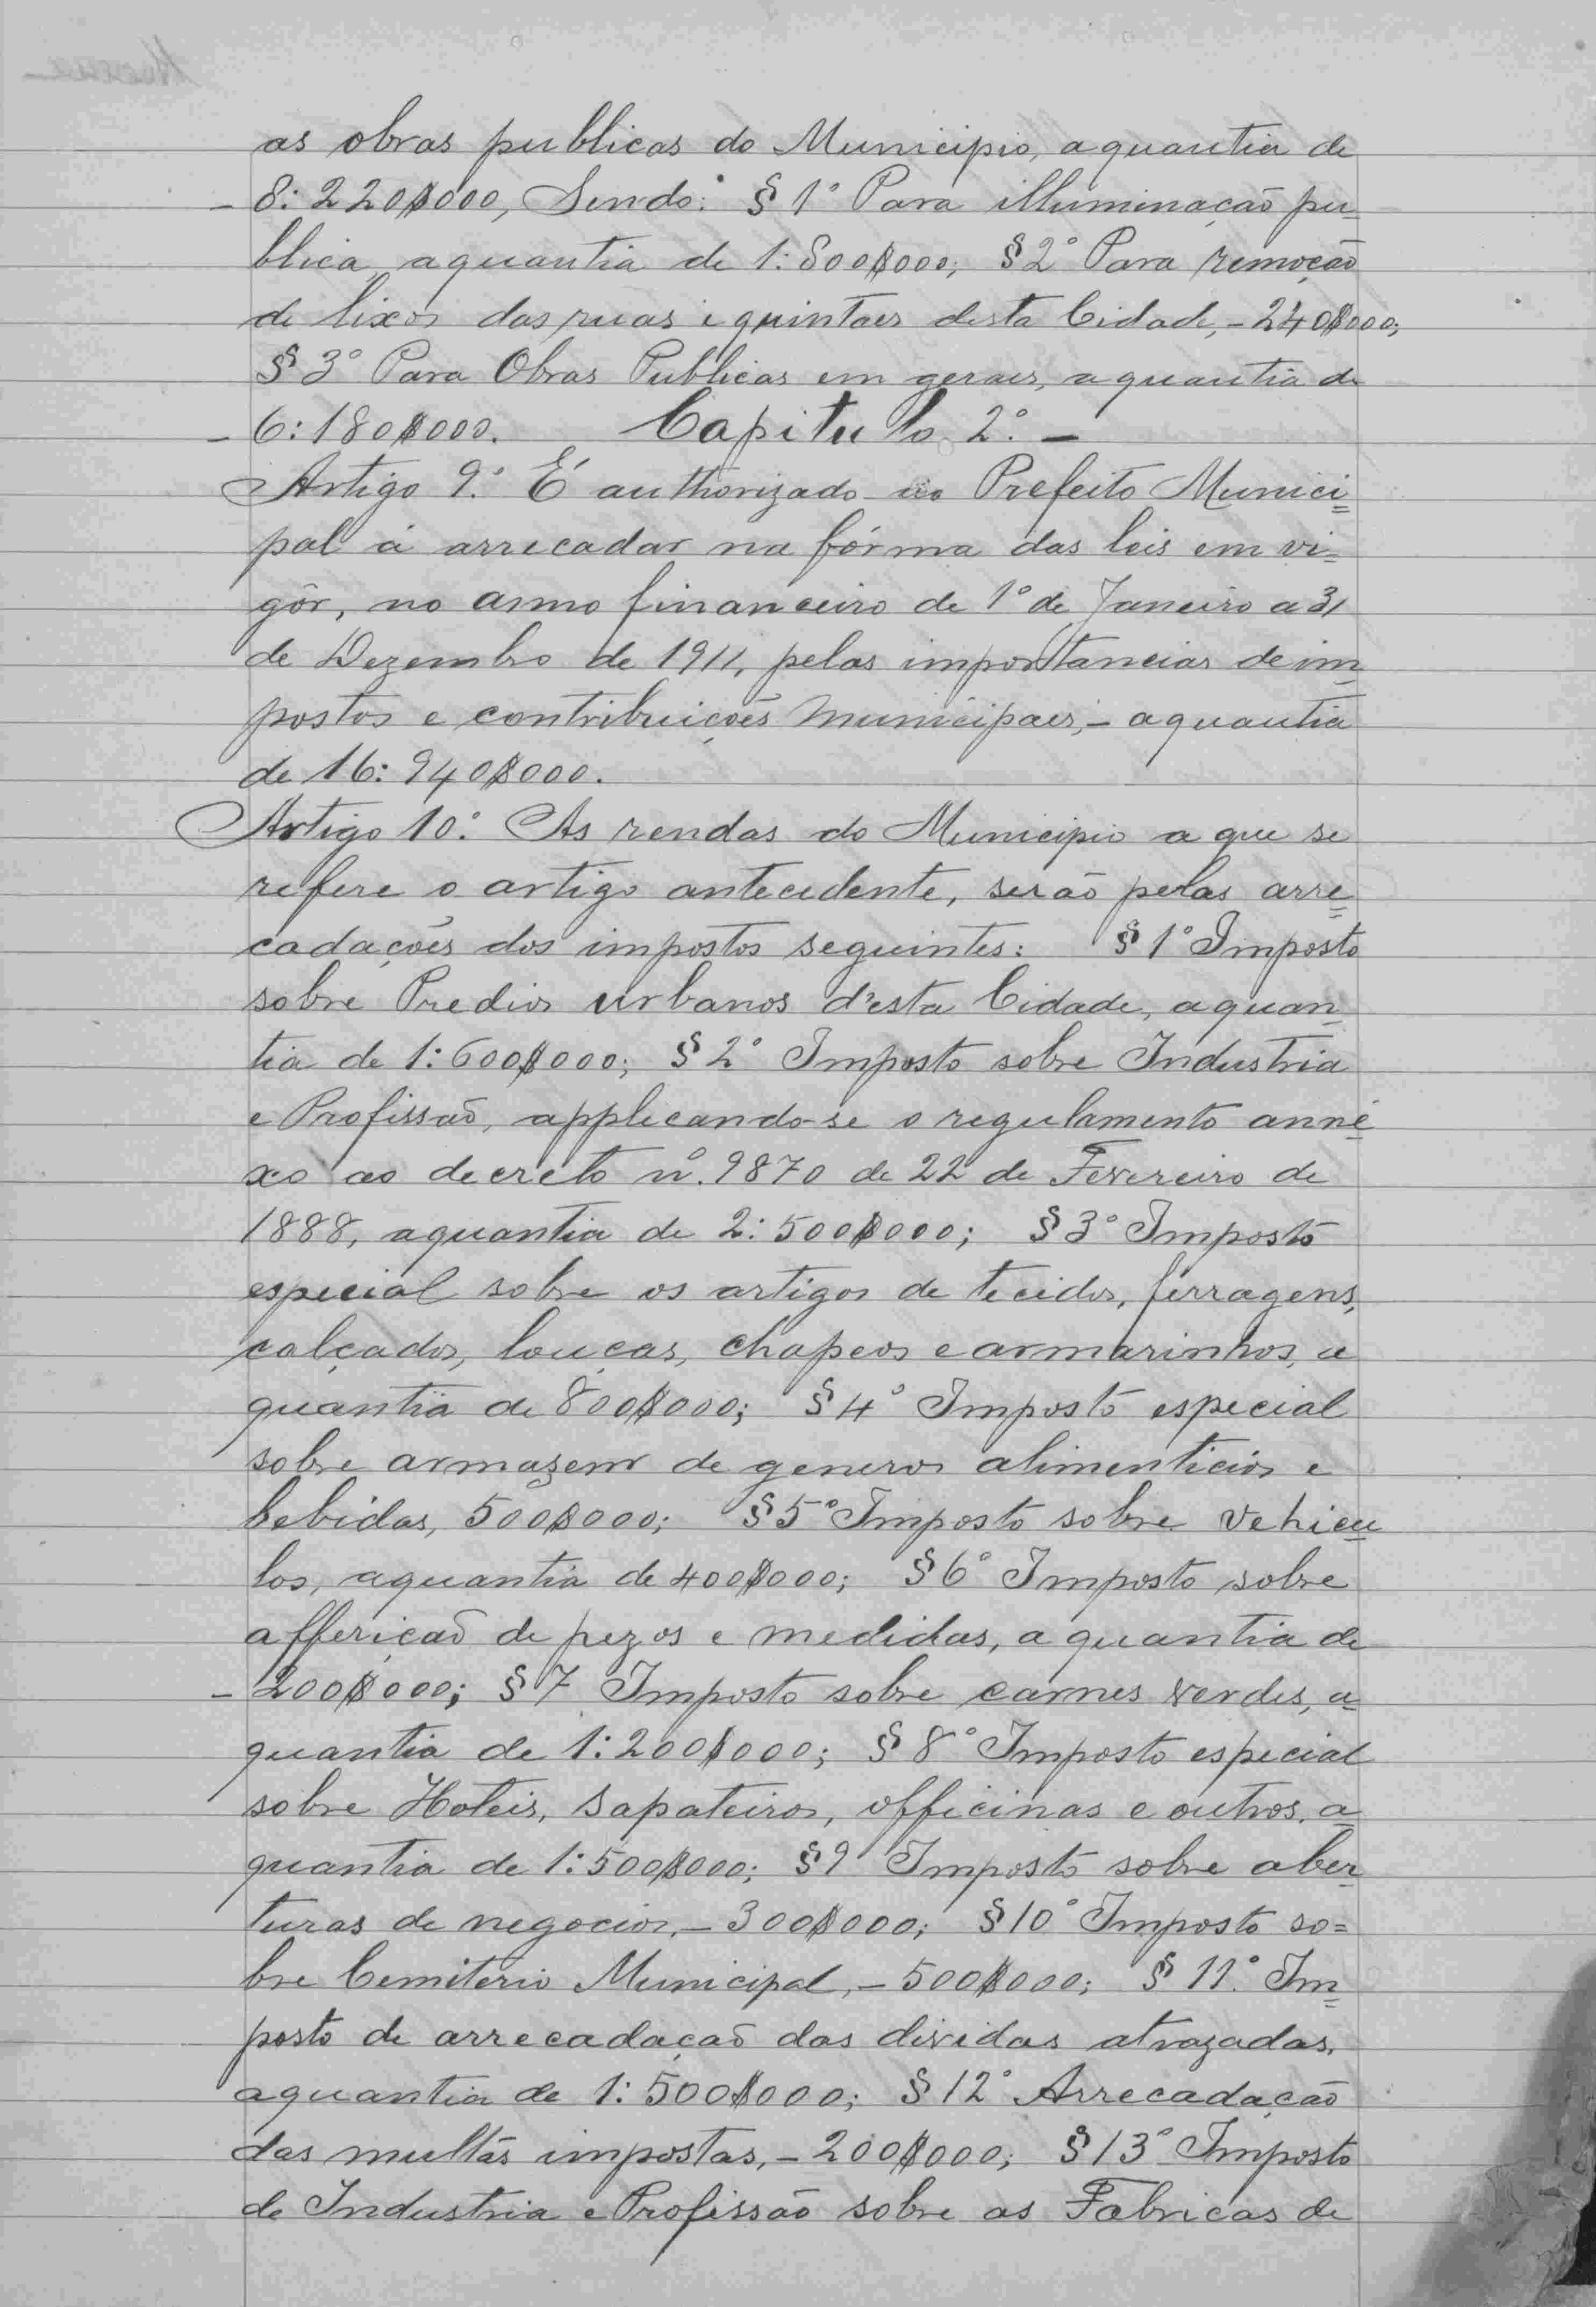 as obras publicas do Municipio, a quantia de
- 8:220$000, Sendo: § 1º Para illuminação pu
blica a quantia de 1:800$000; § 2º Para remoção
de lixos das ruas e quintaes desta Cidade, - 240$000;
§ 3º Para Obras Publicas em geraes, a quantia de
- 6:180$000. Capitulo 2º. -
Artigo 9.º É authorizado ao Prefeito Munici=
pal á arrecadar na fórma das leis em vi=
gôr, no anno financeiro de 1º de Janeiro a 31
de Dezembro de 1911, pelas importancias de im
postos e contribuições Municipaes, - a quantia
de 16:940$000.
Artigo 10.º As rendas do Municipio a que se
refere o artigo antecedente, serão pelas arre=
cadações dos impostos seguintes: § 1º Imposto
sobre Predios urbanos d'esta Cidade, a quan
tia de 1:600$000; § 2º Imposto sobre Industria
e Profissão, applicando-se o regulamento anné
xo ao decreto nº. 9870 de 22 de Fevereiro de
1888, a quantia de 2:500$000; § 3º Imposto
especial sobre os artigos de tecidos, ferragens,
calçados, louças, chapeos e armarinhos, a
quantia de 800$000; § 4º Imposto especial
sobre armazens de generos alimenticios e
bebidas, 500$000; § 5º Imposto sobre Vehicu
los, a quantia de 400$000; § 6º Imposto sobre
afferição de pezos e medidas, a quantia de
- 200$000; § 7 Imposto sobre carnes verdes, a
quantia de 1:200$000; § 8º Imposto especial
sobre Hoteis, Sapateiros, officinas e outros, a
quantia de 1:500$000; § 9 Imposto sobre aber
turas de negocios, - 300$000; § 10º Imposto so=
bre Cemiterio Municipal, - 500$000; § 11.º Im=
posto de arrecadação das dividas atrazadas,
a quantia de 1:500$000; § 12º Arrecadação
das multas impostas, - 200$000; § 13º Imposto
de Industria e Profissão sobre as Fabricas de